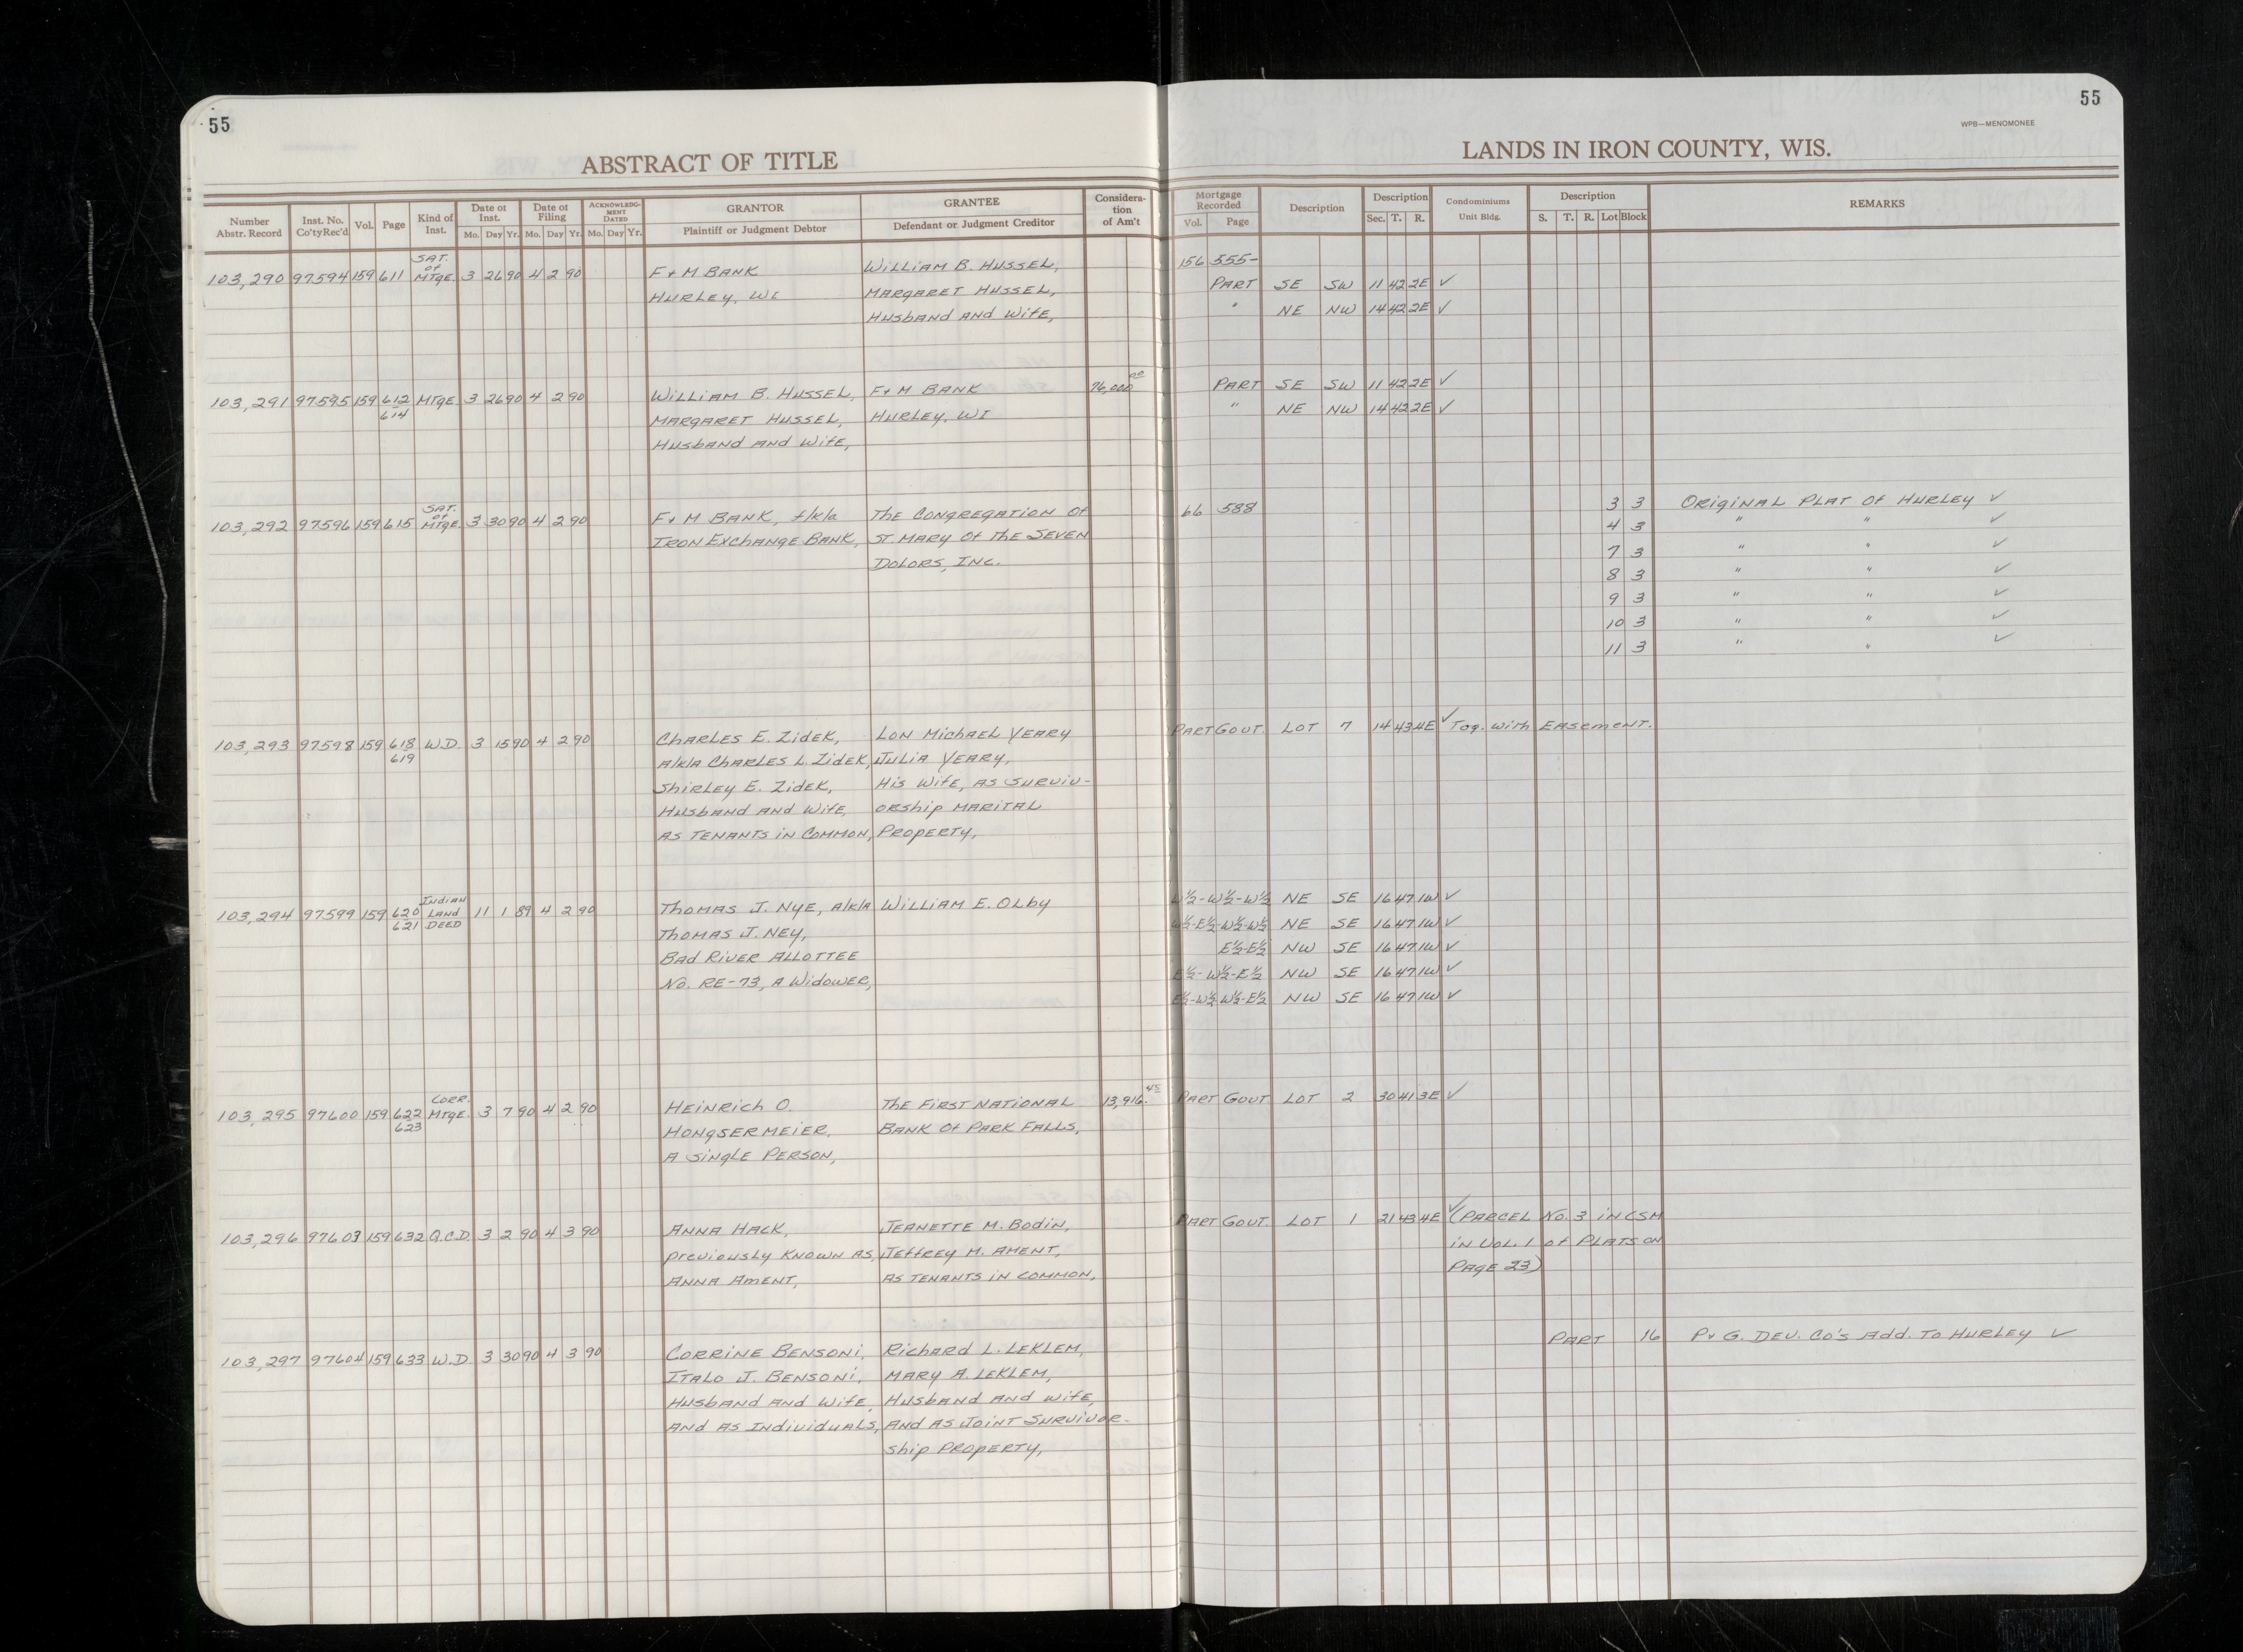 55
ABSTRACT OF TITLE
Number Abstr. Record
Inst. No. Co'ty Rec'd
Vol.
Page
Kind of Inst.
Date of Inst.
Mo. Day Yr.
Date of Filing
Mo. Day Yr.
ACKNOWLEDGMENT DATED
Mo. Day Yr.
GRANTOR
Plaintiff or Judgment Debtor
GRANTEE
Defendant or Judgment Creditor
Consideration of Am't
55
WPB—MENOMONEE
LANDS IN IRON COUNTY, WIS.
Mortgage Recorded
Vol. Page
Description
Description
Sec. T. R.
Condominiums
Unit Bldg.
Description
S. T. R. Lot Block
REMARKS
103,290 97594 159 611 SAT. of MTGE. 3 26 90 4 2 90 F & M BANK WILLIAM B. HUSSEL, 156 555-
HURLEY, WI MARGARET HUSSEL, PART SE SW 11 42 2E ✓
HUSBAND AND WIFE, " NE NW 14 42 2E ✓
103,291 97595 159 612 614 MTGE 3 26 90 4 2 90 WILLIAM B. HUSSEL, F & M BANK 76,000 00 PART SE SW 11 42 2E ✓
MARGARET HUSSEL, HURLEY, WI " NE NW 14 42 2E ✓
HUSBAND AND WIFE,
103,292 97596 159 615 SAT. of MTGE. 3 30 90 4 2 90 F & M BANK, f/k/a THE CONGREGATION OF 66 588 3 3 ORIGINAL PLAT OF HURLEY ✓
IRON EXCHANGE BANK, ST. MARY OF THE SEVEN 4 3 " " ✓
DOLORS, INC. 7 3 " " ✓
8 3 " " ✓
9 3 " " ✓
10 3 " " ✓
11 3 " " ✓
103,293 97598 159 618 619 W.D. 3 15 90 4 2 90 CHARLES E. ZIDEK, LON MICHAEL YEARY PART GOVT. LOT 7 14 43 4E ✓ Tog. with EASEMENT.
A/K/A CHARLES L. ZIDEK, JULIA YEARY,
SHIRLEY E. ZIDEK, HIS WIFE, AS SURVIV-
HUSBAND AND WIFE, ORSHIP MARITAL
AS TENANTS IN COMMON, PROPERTY,
103,294 97599 159 620 621 INDIAN LAND DEED 11 1 89 4 2 90 THOMAS J. NYE, A/K/A WILLIAM E. OLBY W½-W½-W½ NE SE 16 47 1W ✓
THOMAS J. NEY, W½-E½-W½-W½ NE SE 16 47 1W ✓
BAD RIVER ALLOTTEE E½-E½ NW SE 16 47 1W ✓
NO. RE-73, A WIDOWER, E½-W½-E½ NW SE 16 47 1W ✓
E½-W½ W½-E½ NW SE 16 47 1W ✓
103,295 97600 159 622 623 CORR. MTGE. 3 7 90 4 2 90 HEINRICH O. THE FIRST NATIONAL 13,916. 45 PART GOVT LOT 2 30 41 3E ✓
HONGSERMEIER, BANK OF PARK FALLS,
A SINGLE PERSON,
103,296 97603 159 632 Q.C.D. 3 2 90 4 3 90 ANNA HACK, JEANETTE M. BODIN, PART GOVT. LOT 1 21 43 4E ✓ (PARCEL NO. 3 IN CSM
PREVIOUSLY KNOWN AS, JEFFREY M. AMENT, IN VOL. 1 OF PLATS ON
ANNA AMENT, AS TENANTS IN COMMON, PAGE 23)
103,297 97604 159 633 W.D. 3 30 90 4 3 90 CORRINE BENSONI, RICHARD L. LEKLEM, PART 16 P & G. DEV. CO'S ADD. TO HURLEY ✓
ITALO J. BENSONI, MARY A. LEKLEM,
HUSBAND AND WIFE, HUSBAND AND WIFE,
AND AS INDIVIDUALS, AND AS JOINT SURVIVOR-
SHIP PROPERTY,